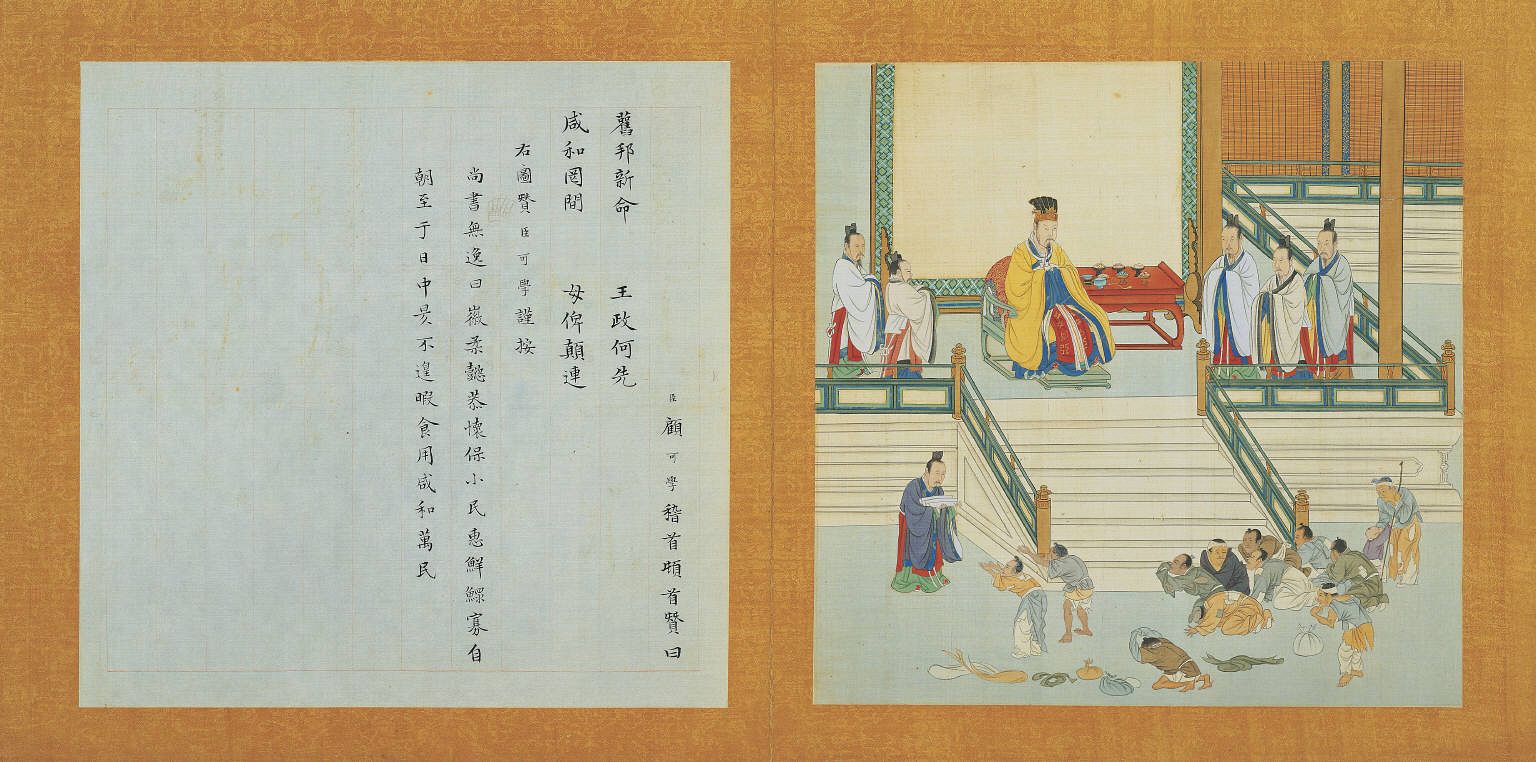 臣顧可學稽首頓首贊曰
舊邦新命　王政何先
咸和罔間　毋俾顛連
右圖贊臣可學謹按
尚書無逸曰徽柔懿恭懷保小民惠鮮鰥寡自
朝至于日中昃不遑暇食用咸和萬民